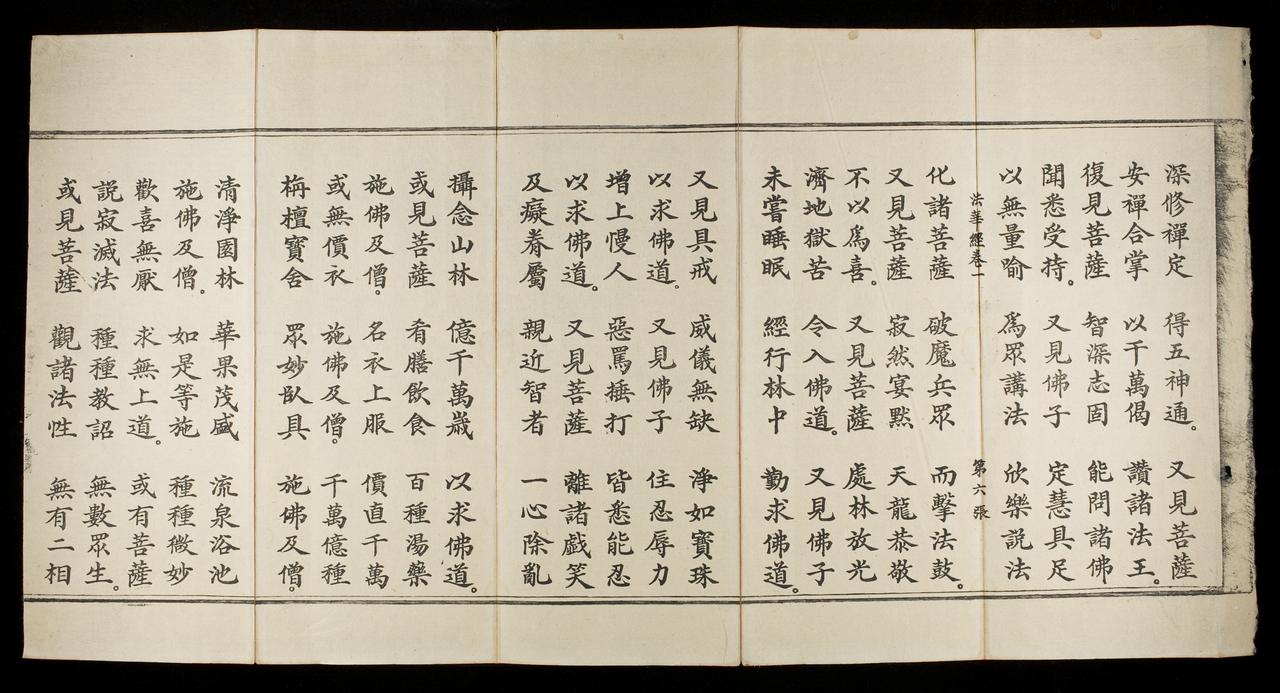 深修禪定 得五神通。 又見菩薩
安禪合掌 以千萬偈 讚諸法王。
復見菩薩 智深志固 能問諸佛
聞悉受持。 又見佛子 定慧具足
以無量喻 爲眾講法 欣樂説法
法華經卷一 第六張
化諸菩薩 破魔兵眾 而擊法鼓。
又見菩薩 寂然宴默 天龍恭敬
不以爲喜。 又見菩薩 處林放光
濟地獄苦 令入佛道。 又見佛子
未嘗睡眠 經行林中 勤求佛道。
又見具戒 威儀無缺 淨如寶珠
以求佛道。 又見佛子 住忍辱力
增上慢人 惡罵捶打 皆悉能忍
以求佛道。 又見菩薩 離諸戯笑
及癡眷屬 親近智者 一心除亂
攝念山林 億千萬歲 以求佛道。
或見菩薩 肴膳飲食 百種湯藥
施佛及僧。 名衣上服 價直千萬
或無價衣 施佛及僧。 千萬億種
栴檀寶舍 眾妙臥具 施佛及僧。
清淨園林 華果茂盛 流泉浴池
施佛及僧。 如是等施 種種微妙
歡喜無厭 求無上道。 或有菩薩
説寂滅法 種種教詔 無數眾生。
或見菩薩 觀諸法性 無有二相